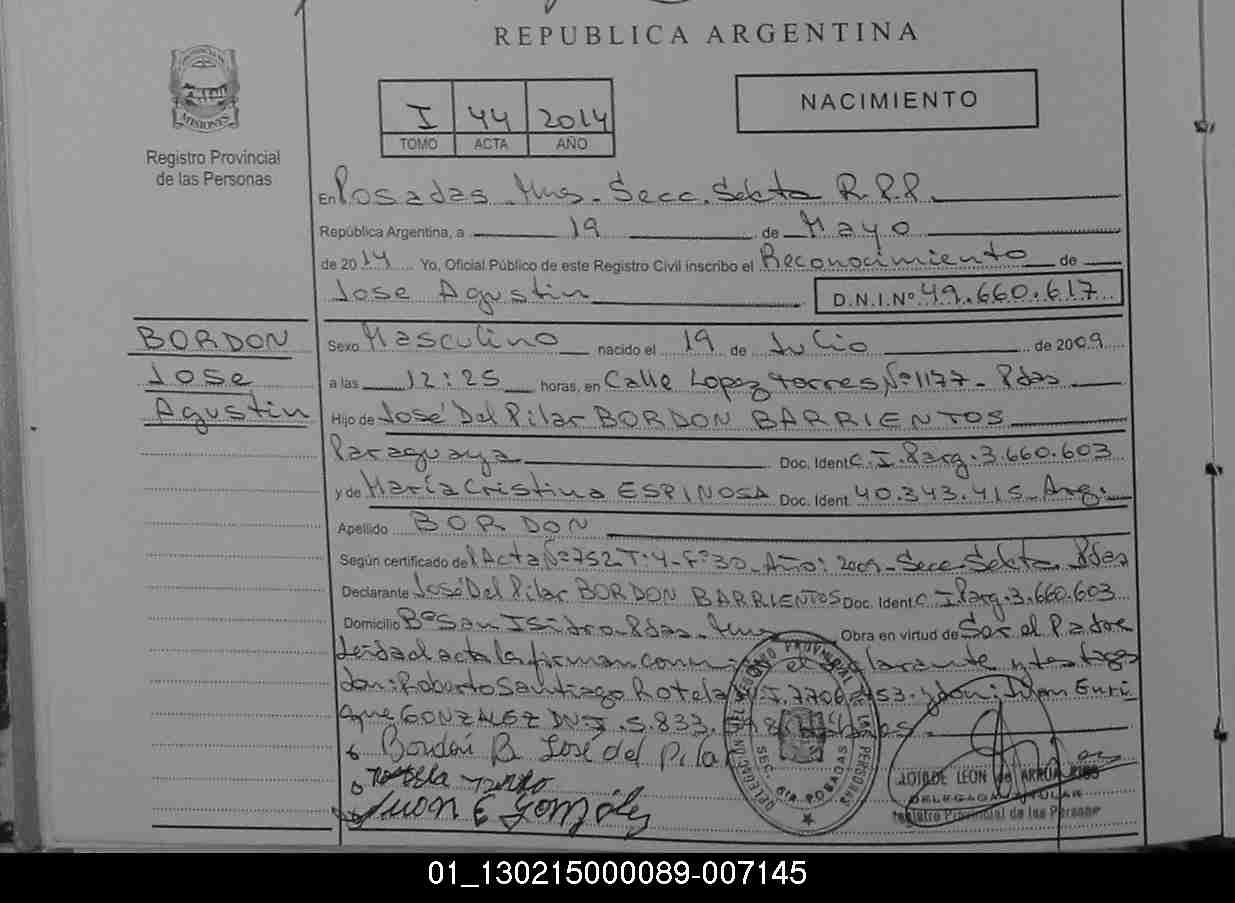 REPUBLICA ARGENTINA
MISIONES
Registro Provincial
de las Personas
I 44 2014
TOMO ACTA AÑO
NACIMIENTO
En Posadas. Mns. Secc. Sexta R.P.P.
República Argentina, a 19 de Mayo
de 2014 Yo, Oficial Público de este Registro Civil inscribo el Reconocimiento de
Jose Agustin D.N.I.Nº 49.660.617
BORDON
Jose
Agustin
Sexo Masculino nacido el 19 de Julio de 2009
a las 12:25 horas, en Calle Lopez torres, Nº 1177 - Pdas
Hijo de José Del Pilar BORDON BARRIENTOS
Paraguaya Doc. Ident C.I. Parg. 3.660.603
y de María Cristina ESPINOSA Doc. Ident 40.343.415 Arg.
Apellido BORDON
Según certificado del Acta Nº 752 T:4 - Fº 30 - Año: 2009 - Secc. Sexta Pdas
Declarante José Del Pilar BORDON BARRIENTOS Doc. Ident C.I. Parg. 3.660.603
Domicilio Bº San Isidro - Pdas. Mns Obra en virtud de Ser el Padre
Leida el acta la firman conmigo el declarante y testigos
don: Roberto Santiago Rotela I. 7706 53 y don: Juan Enri
que GONZALEZ DNI 5.833.
Bordón B José del Pilar
Juan E González
DELEGACION DEL REGISTRO PROVINCIAL DE LAS PERSONAS
SEC. 6ta POSADAS
LEON de ARRUA
DELEGADA TITULAR
Registro Provincial de las Personas
01_130215000089-007145